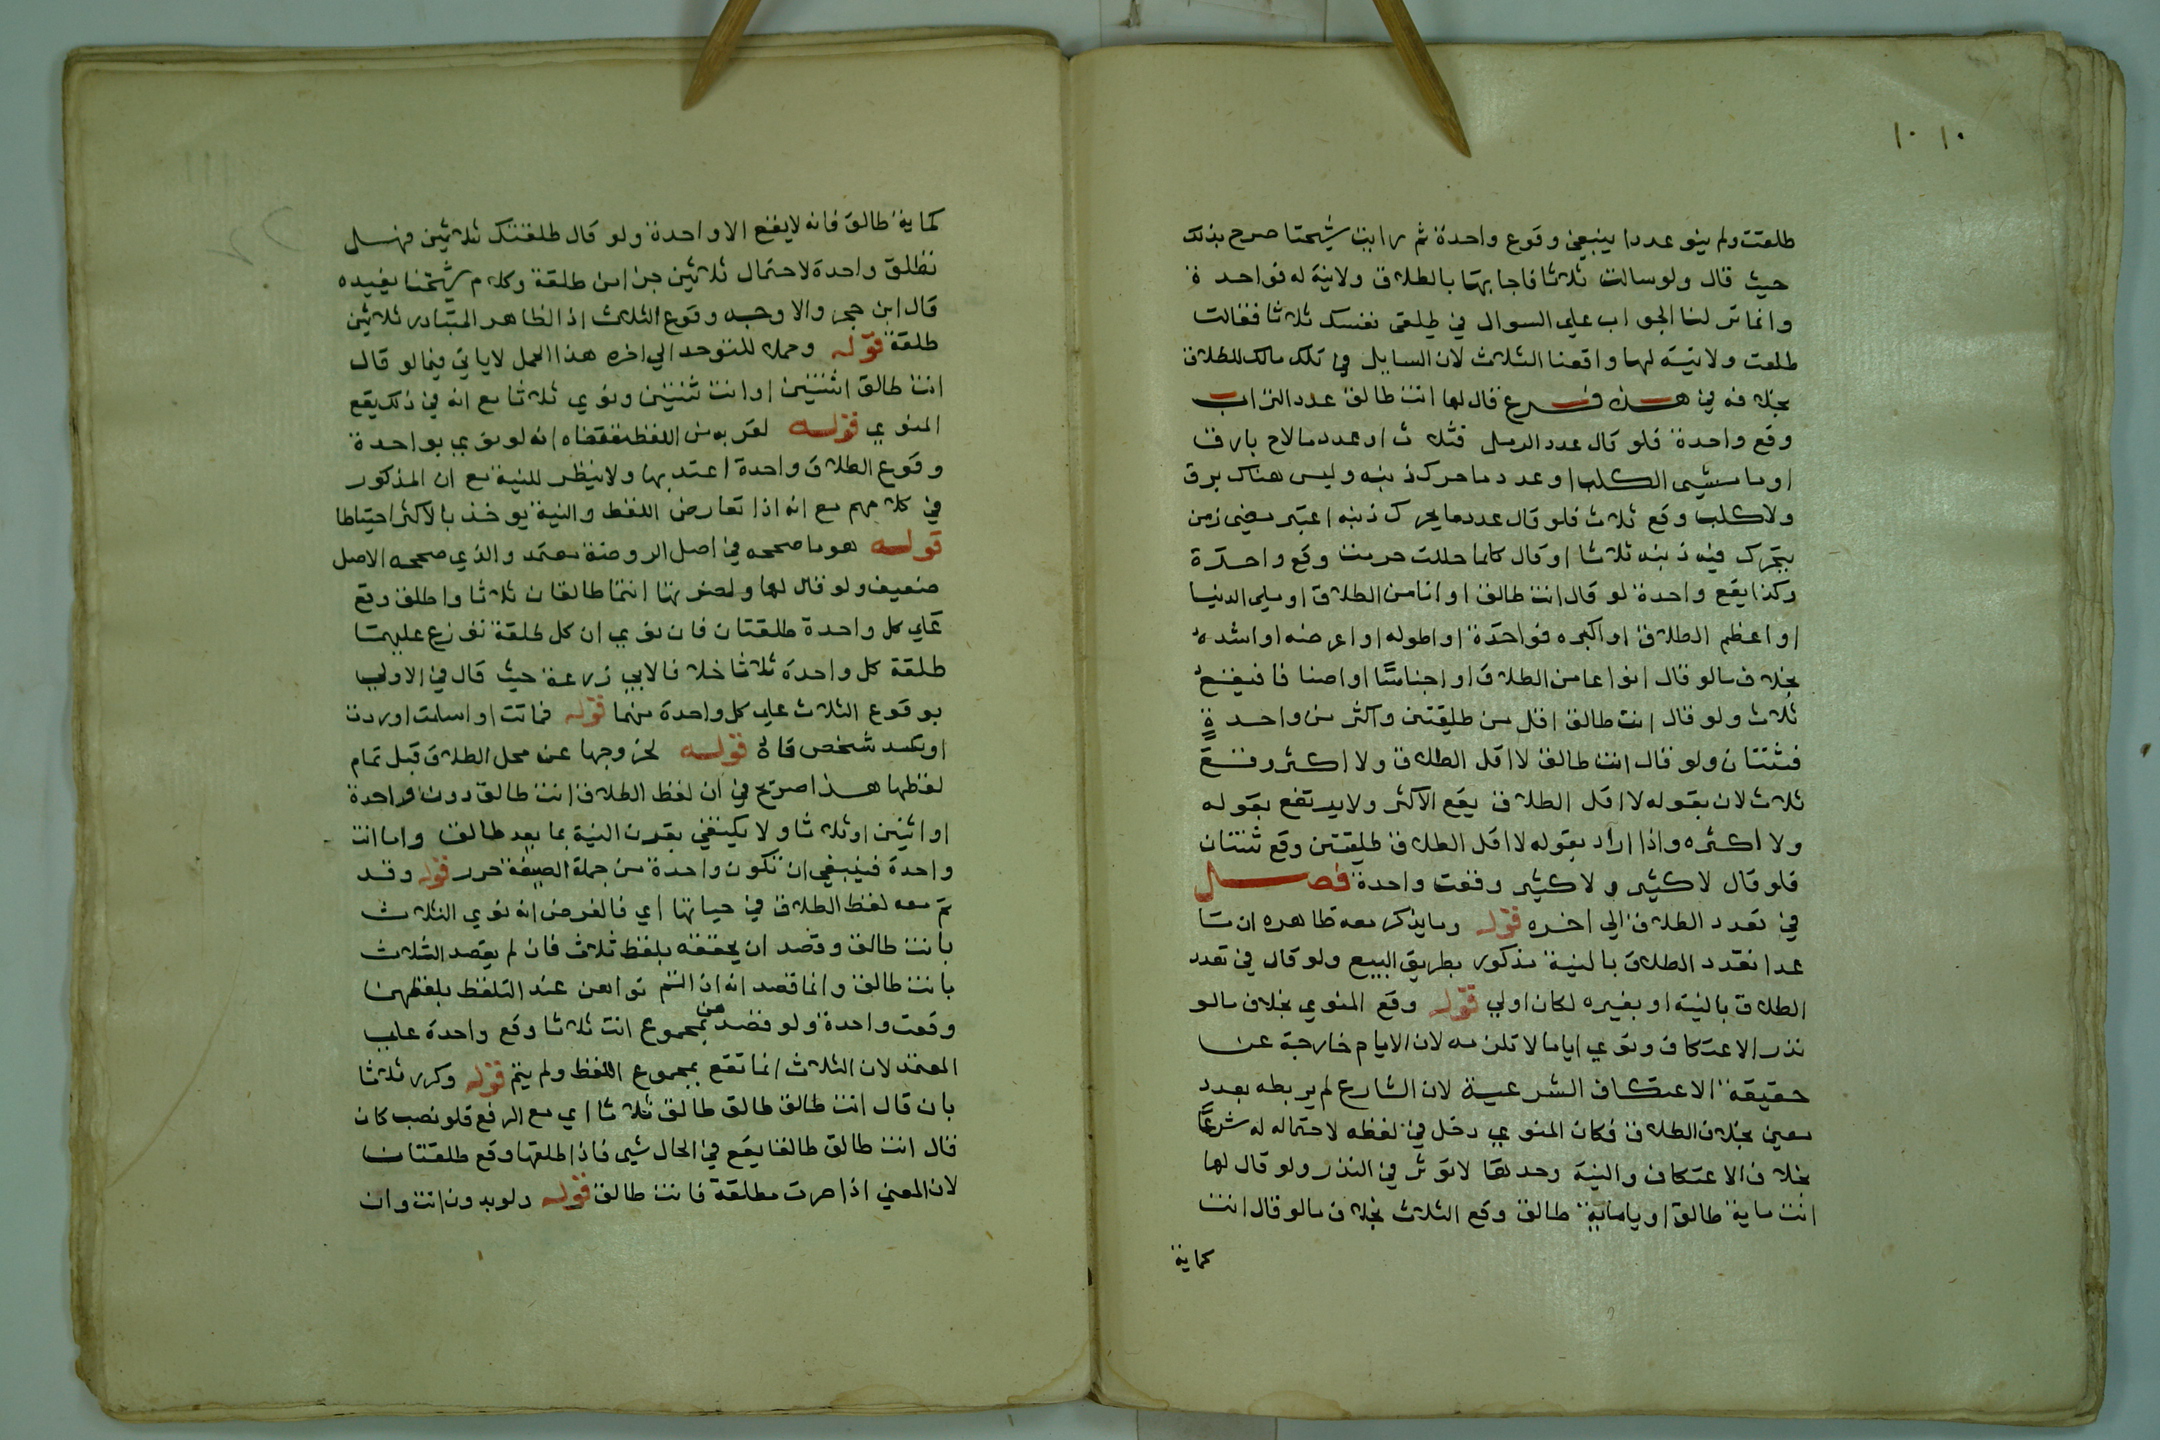 ١٠ ١٠
طلقت ولم ينو عددا ينبغي وقوع واحدة ثم رايت شيخنا صرح بذلك
حيث قال ولو سالت ثلاثا فاجابها بالطلاق ولانية له فواحدة
وانما نزلنا الجواب على السوال في طلقي نفسك ثلاثا فقالت
طلقت ولانية لها واقعنا الثلاث لان السايل في تلك مالك للطلاق
بخلافه في هذه فرع قال لها انت طالق عدد التراب
وقع واحدة فلو قال عدد الرمل فثلاث او عدد ما لاح بارق
او ما مشي الكلب او عدد ما حرك ذنبه وليس هناك برق
ولا كلب وقع ثلاث فلو قال عدد ما يحرك ذنبه اعتبر مضي زمن
يتحرك فيه ذنبه ثلاثا او قال كلما حللت حرمت وقع واحدة
وكذا يقع واحدة لو قال انت طالق او انا من الطلاق او ملي الدنيا
او اعظم الطلاق او اكبره فواحدة او اطوله او اعرضه او اشده
بخلاف ما لو قال انواعا من الطلاق او اجناسا او اصنافا فيقع
ثلاث ولو قال انت طالق اقل من طلقتين واكثر من واحدة
فثنتان ولو قال انت طالق لا اقل الطلاق ولا اكثره وقع
ثلاث لان بقوله لا اقل الطلاق يقع الاكثر ولا يرتفع بقوله
ولا اكثره واذا اراد بقوله لا اقل الطلاق طلقتين وقع ثنتان
فلو قال لا كثير ولا كثير وقعت واحدة فصل
في تعدد الطلاق الى اخره قوله وما يذكر معه ظاهره ان ما
عدا تعدد الطلاق بالنية مذكور بطريق البيع ولو قال في تعدد
الطلاق بالنية او بغيره لكان اولي قوله وقع المنوي بخلاف ما لو
نذر الاعتكاف ونوي اياما لا تلزمه لان الايام خارجة عن
حقيقة الاعتكاف الشرعية لان الشارع لم يربطه بعدد
معين بخلاف الطلاق فكان المنوي دخل في لفظه لاحتماله له شرعا
بخلاف الاعتكاف والنية وحدها لا توثر في النذر ولو قال لها
انت ماية طالق او ياماية طالق وقع الثلاث بخلاف ما لو قال انت
كماية
كماية طالق فانه لا يقع الا واحدة ولو قال طلقتك ثلاثين فهل
تطلق واحدة لاحتمال ثلاثين جزا من طلقة وكلام شيخنا يفيده
قال ابن حجر والاوجه وقوع الثلاث اذ الظاهر المتبادر ثلاثين
طلقة قوله وحمله للتوحد الي اخره هذا الحمل لا ياتي فيما لو قال
انت طالق اثنتين او انت ثنتين ونوي ثلاثا مع انه في ذلك يقع
المنوي قوله لقربه من اللفظ مقتضاه انه لو نوي بواحدة
وقوع الطلاق واحدة اعتد بها ولا ينظر للنية مع ان المذكور
في كلامهم مع انه اذا تعارض اللفظ والنية يوخذ بالاكثر احتياطا
قوله هو ما صححه في اصل الروضة معتمد والذي صححه الاصل
ضعيف ولو قال لها ولضرتها انتما طالقان ثلاثا واطلق وقع
علي كل واحدة طلقتان فان نوي ان كل طلقة توزع عليهما
طلقة كل واحدة ثلاثا خلافا لابي زرعة حيث قال في الاولي
بوقوع الثلاث علي كل واحدة منهما قوله فماتت او اسلمت او ردت
او بسد شخص فاه قوله لخروجها عن محل الطلاق قبل تمام
لفظها هذا صريح في ان لفظ الطلاق انت طالق دون واحدة
او اثنين او ثلاثا ولا يكتفي بقرن النية بما بعد طالق واما انت
واحدة فينبغي ان تكون واحدة من جملة الصيغة حرر قوله وقد
تم معه لفظ الطلاق في حياتها اي فالفرض انه نوي الثلاث
بانت طالق وقصد ان يحققه بلفظ ثلاث فان لم يقصد الثلاث
بانت طالق وانما قصد انه اذا تم نواهن عند التلفظ بلفظهن
وقعت واحدة ولو قصدهن بمجموع انت ثلاثا وقع واحدة علي
المعتمد لان الثلاث انما تقع بمجموع اللفظ ولم يتم قوله وكرر ثلاثا
بان قال انت طالق طالق طالق ثلاثا اي مع الرفع فلو نصب كان
قال انت طالق طالقا يقع في الحال شي فاذا طلقها وقع طلقتان
لان المعني اذا صرت مطلقة فانت طالق قوله ولو بدون انت وان